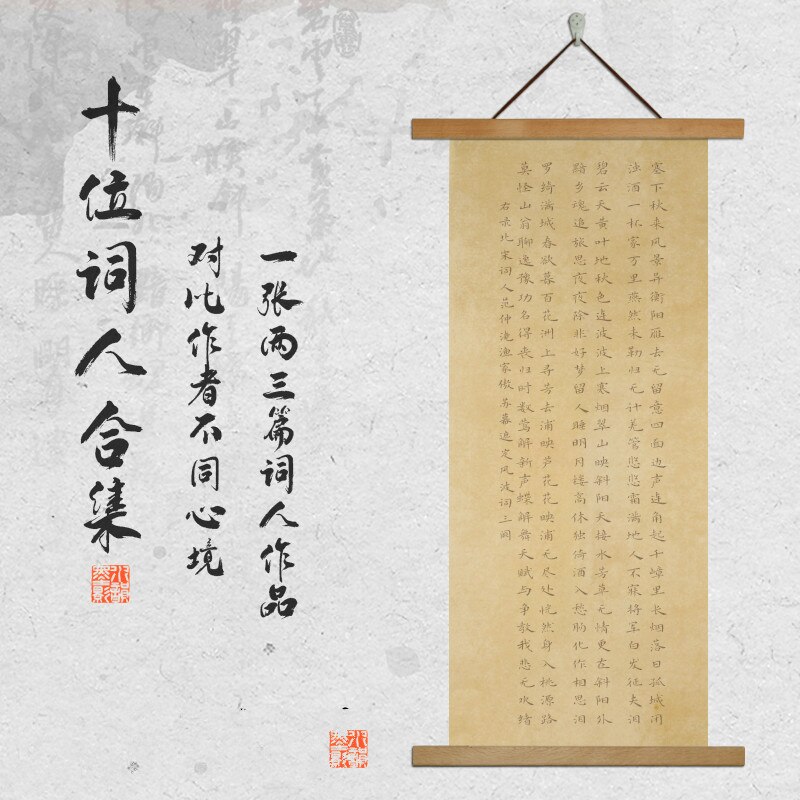 十位词人合集
一张两三篇词人作品
对比作者不同心境
塞下秋来风景异衡阳雁去无留意四面边声连角起千嶂里长烟落日孤城闭
浊酒一杯家万里燕然未勒归无计羌管悠悠霜满地人不寐将军白发征夫泪
碧云天黄叶地秋色连波波上寒烟翠山映斜阳天接水芳草无情更在斜阳外
黯乡魂追旅思夜夜除非好梦留人睡明月楼高休独倚酒入愁肠化作相思泪
罗绮满城春欲暮百花洲上寻芳去浦映芦花花映浦无尽处恍然身入桃源路
莫怪山翁聊逸豫功名得丧归时数莺解新声蝶解舞天赋与争教我悲无欢绪
右录北宋词人范仲淹渔家傲苏幕遮定风波词三阕